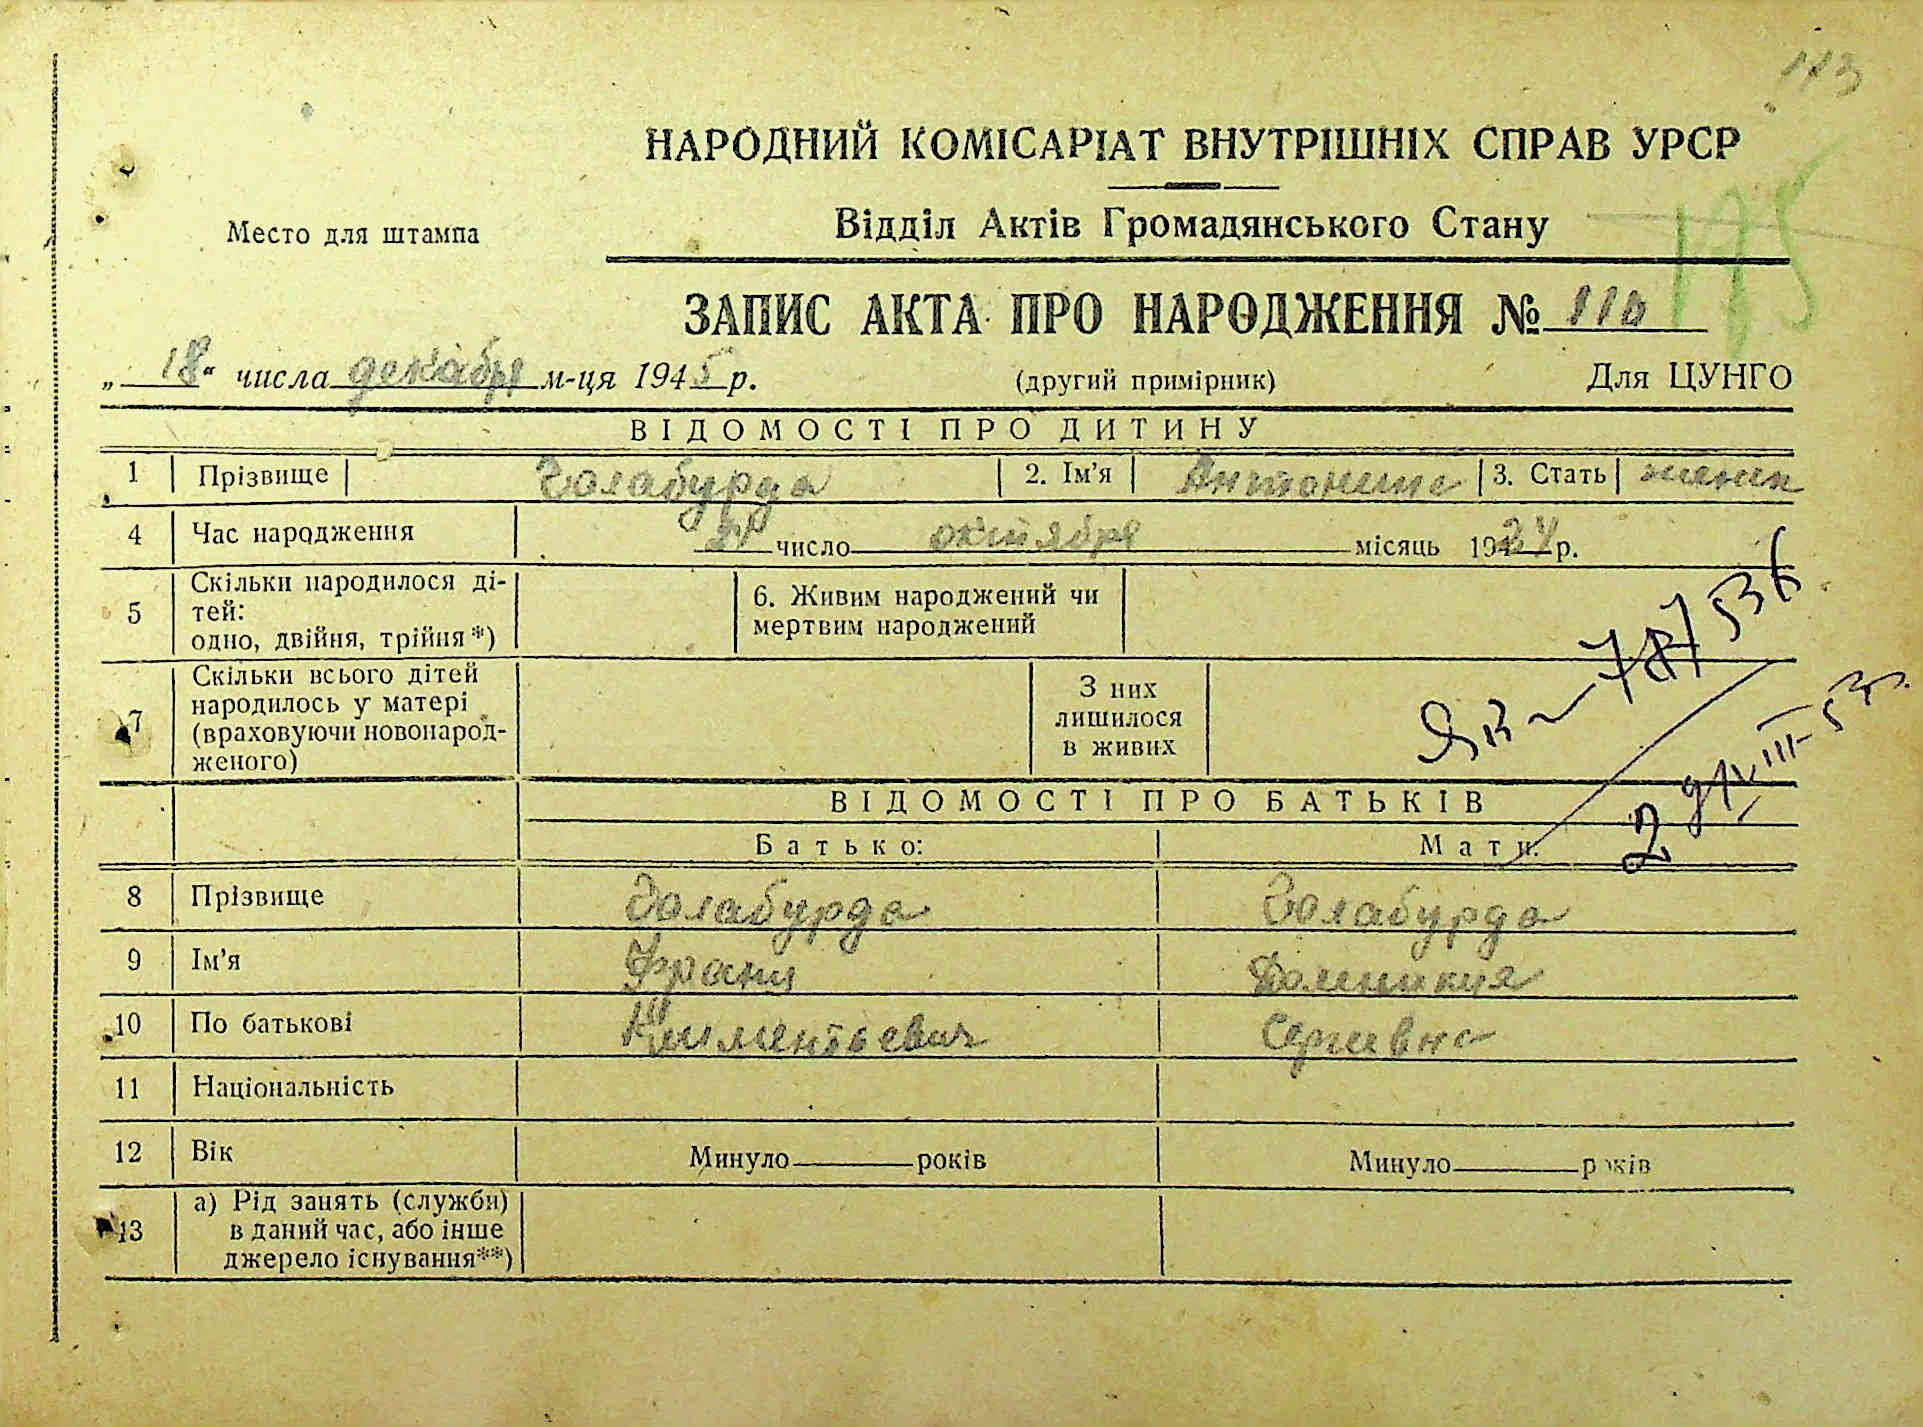 113
НАРОДНИЙ КОМІСАРІАТ ВНУТРІШНІХ СПРАВ УРСР
Место для штампа
Відділ Актів Громадянського Стану
175
ЗАПИС АКТА ПРО НАРОДЖЕННЯ №
„ 18 “ числа декабря м-ця 1945 р. (другий примірник) Для ЦУНГО
ВІДОМОСТІ ПРО ДИТИНУ
1 Прізвище Голабурда 2. Ім'я Антонина 3. Стать женск
4 Час народження 21 число октября місяць 1924 р.
5 Скільки народилося ді-
тей:
одно, двійня, трійня*)
6. Живим народжений чи
мертвим народжений
7 Скільки всього дітей
народилось у матері
(враховуючи новонарод-
женого)
З них
лишилося
в живих
ВІДОМОСТІ ПРО БАТЬКІВ
Батько: Мати:
8 Прізвище Голабурда Голабурда
9 Ім'я Франц Доминикия
10 По батькові Климентьевич Сергеевна
11 Національність
12 Вік Минуло років Минуло років
13 а) Рід занять (служби)
в даний час, або інше
джерело існування**)